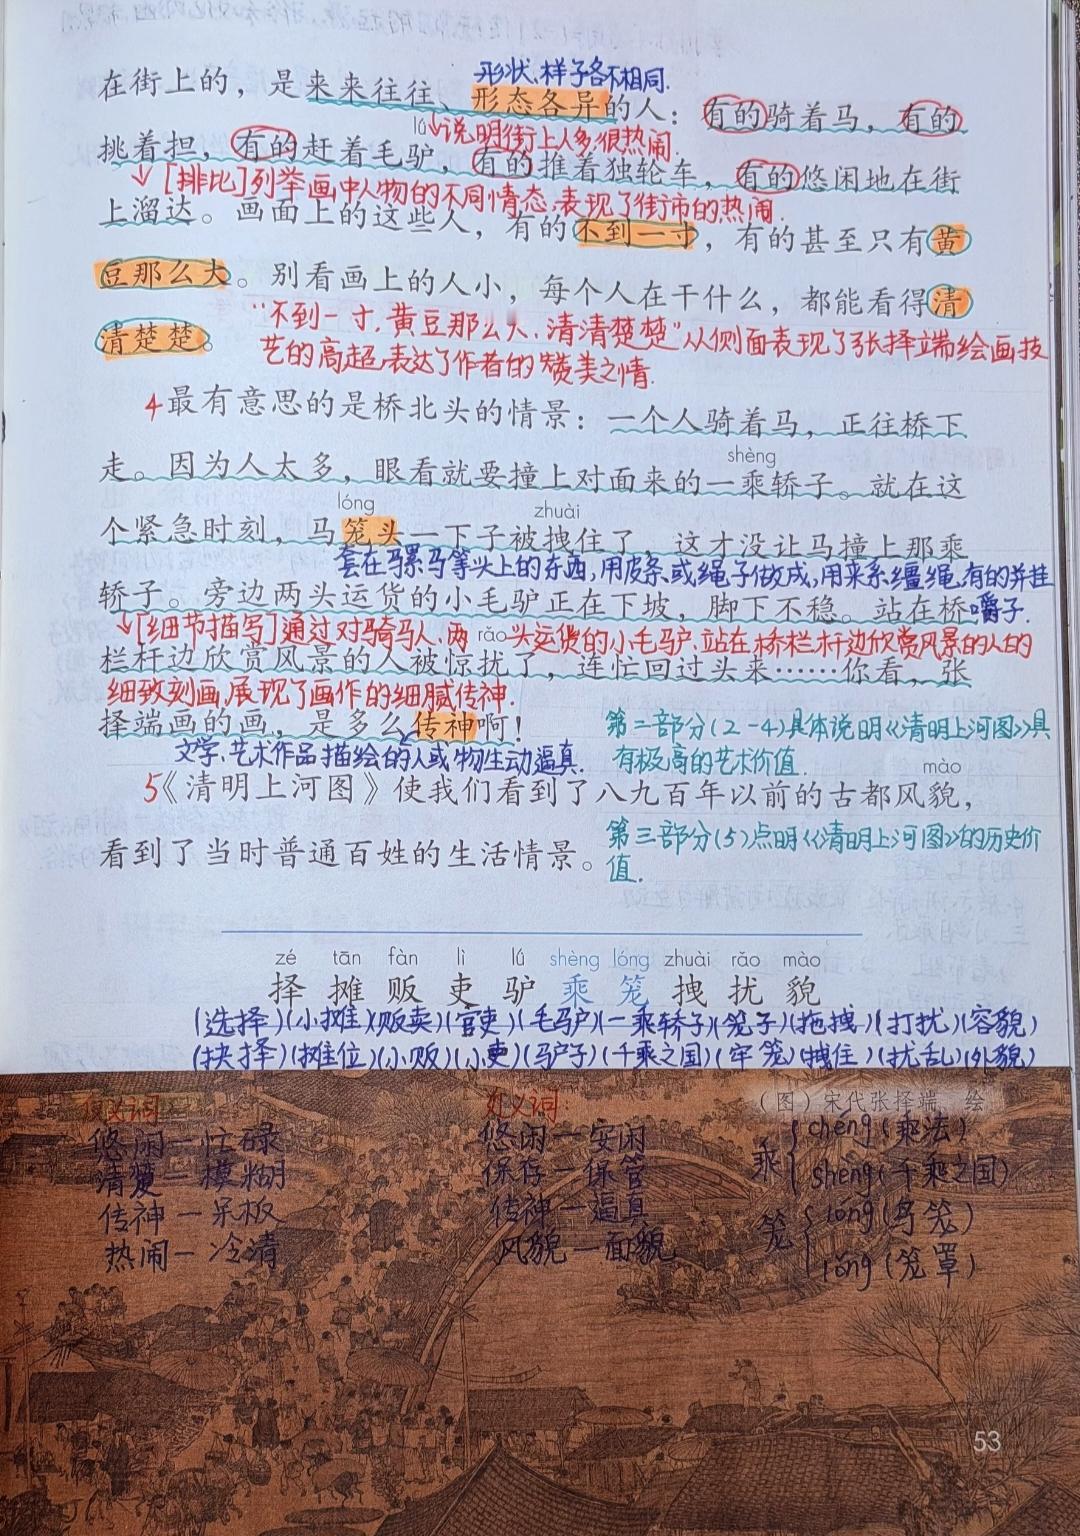 形状、样子各不相同.
在街上的，是来来往往、形态各异的人：有的骑着马，有的
lǘ
↓说明街上人多,很热闹.
挑着担，有的赶着毛驴，有的推着独轮车，有的悠闲地在街
↓[排比]列举画中人物的不同情态,表现了街市的热闹.
上溜达。画面上的这些人，有的不到一寸，有的甚至只有黄
豆那么大。别看画上的人小，每个人在干什么，都能看得清
清楚楚。
“不到一寸.黄豆那么大.清清楚楚”从侧面表现了张择端绘画技
艺的高超,表达了作者的赞美之情.
4 最有意思的是桥北头的情景：一个人骑着马，正往桥下
shèng
走。因为人太多，眼看就要撞上对面来的一乘轿子。就在这
lóng zhuài
个紧急时刻，马笼头一下子被拽住了，这才没让马撞上那乘
套在骡马等头上的东西,用皮条或绳子做成,用来系缰绳,有的并挂
嚼子.
轿子。旁边两头运货的小毛驴正在下坡，脚下不稳。站在桥
↓[细节描写]通过对骑马人、两头运货的小毛驴、站在桥栏杆边欣赏风景的人的
rǎo
栏杆边欣赏风景的人被惊扰了，连忙回过头来……你看，张
细致刻画,展现了画作的细腻传神.
择端画的画，是多么传神啊！
第二部分(2-4)具体说明《清明上河图》具
文学、艺术作品描绘的人或物生动逼真.
有极高的艺术价值.
mào
5《清明上河图》使我们看到了八九百年以前的古都风貌，
第三部分(5)点明《清明上河图》的历史价
看到了当时普通百姓的生活情景。
值.
zé tān fàn lì lǘ shèng lóng zhuài rǎo mào
择 摊 贩 吏 驴 乘 笼 拽 扰 貌
(选择)(小摊)(贩卖)(官吏)(毛驴)(一乘轿子)(笼子)(拖拽)(打扰)(容貌)
(抉择)(摊位)(小贩)(小吏)(驴子)(千乘之国)(牢笼)(拽住)(扰乱)(外貌)
（图）宋代张择端 绘
反义词
悠闲—忙碌
清楚—模糊
传神—呆板
热闹—冷清
近义词:
悠闲—安闲
保存—保管
传神—逼真
风貌—面貌
乘{chéng(乘法)
shèng(千乘之国)
笼{lóng(鸟笼)
lǒng(笼罩)
53